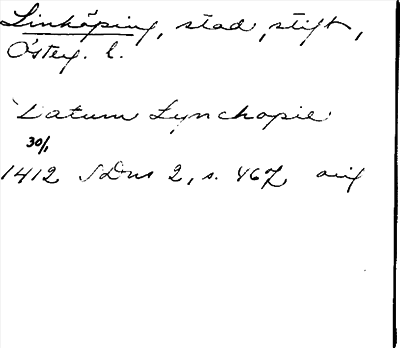 Linköping, stad, stift,
Österg. l.
"Datum Lynchopie"
30/1
1412 SDns 2, s. 467 orig